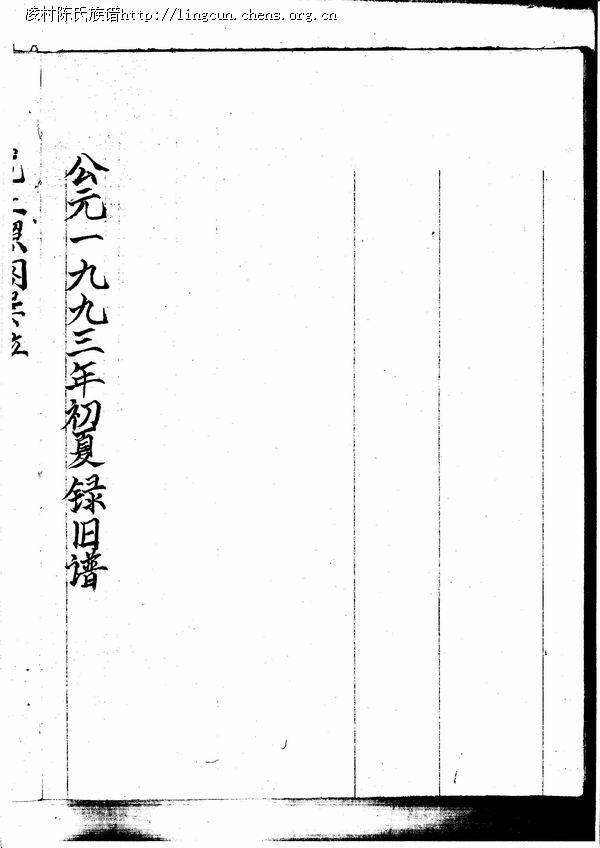 凌村陈氏族谱http://lingcun.chens.org.cn
公元一九九三年初夏录旧谱